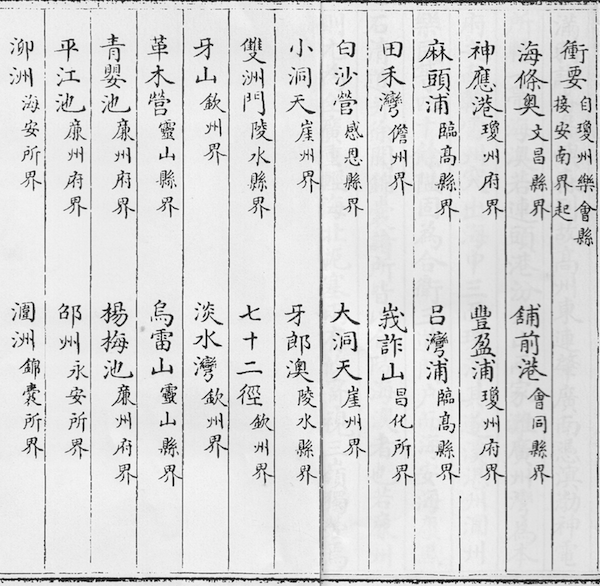 衝要自瓊州樂會縣接安南界起
海條奧文昌縣界 舖前港會同縣界
神應港瓊州府界 豐盈浦瓊州府界
麻頭浦臨髙縣界 呂灣浦臨髙縣界
田禾灣儋州界 峩詐山昌化所界
白沙營感恩縣界 大洞天崖州界
小洞天崖州界 牙郎澳陵水縣界
雙洲門陵水縣界 七十二徑欽州界
牙山欽州界 淡水灣欽州界
革木營靈山縣界 烏雷山靈山縣界
青嬰池廉州府界 楊梅池廉州府界
平江池廉州府界 邵州永安所界
泖洲海安所界 潿洲錦囊所界